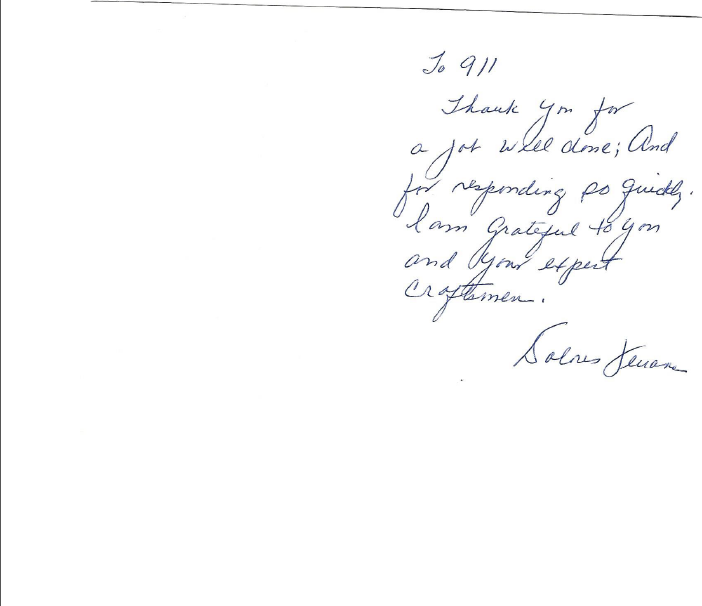 To 911
Thank you for
a job well done; And
for responding so quickly.
I am Grateful to you
and your expert
Craftsmen.
Dolores